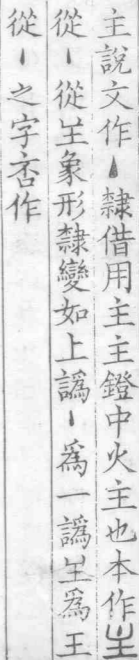 主說文作丶隸借用主主鐙中火主也本作
從丶從𡈼象形隸變如上譌丶爲一譌𡈼爲王
從丶之字否作